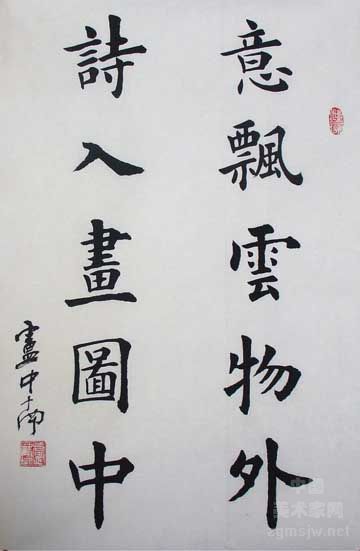 意飄雲物外
詩入畫圖中
盧中南
中国
美术家网
zgmsjw.net